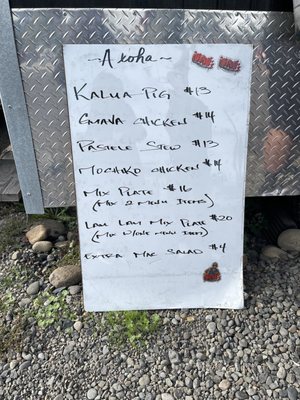 ~Aloha~
Kalua Pig $13
Guava Chicken $14
Pastele Stew $13
Mochiko Chicken $14
Mix Plate $16
(Mix 2 Menu Items)
Lau Lau Mix Plate $20
(Mix w/one menu Item)
Extra Mac Salad $4